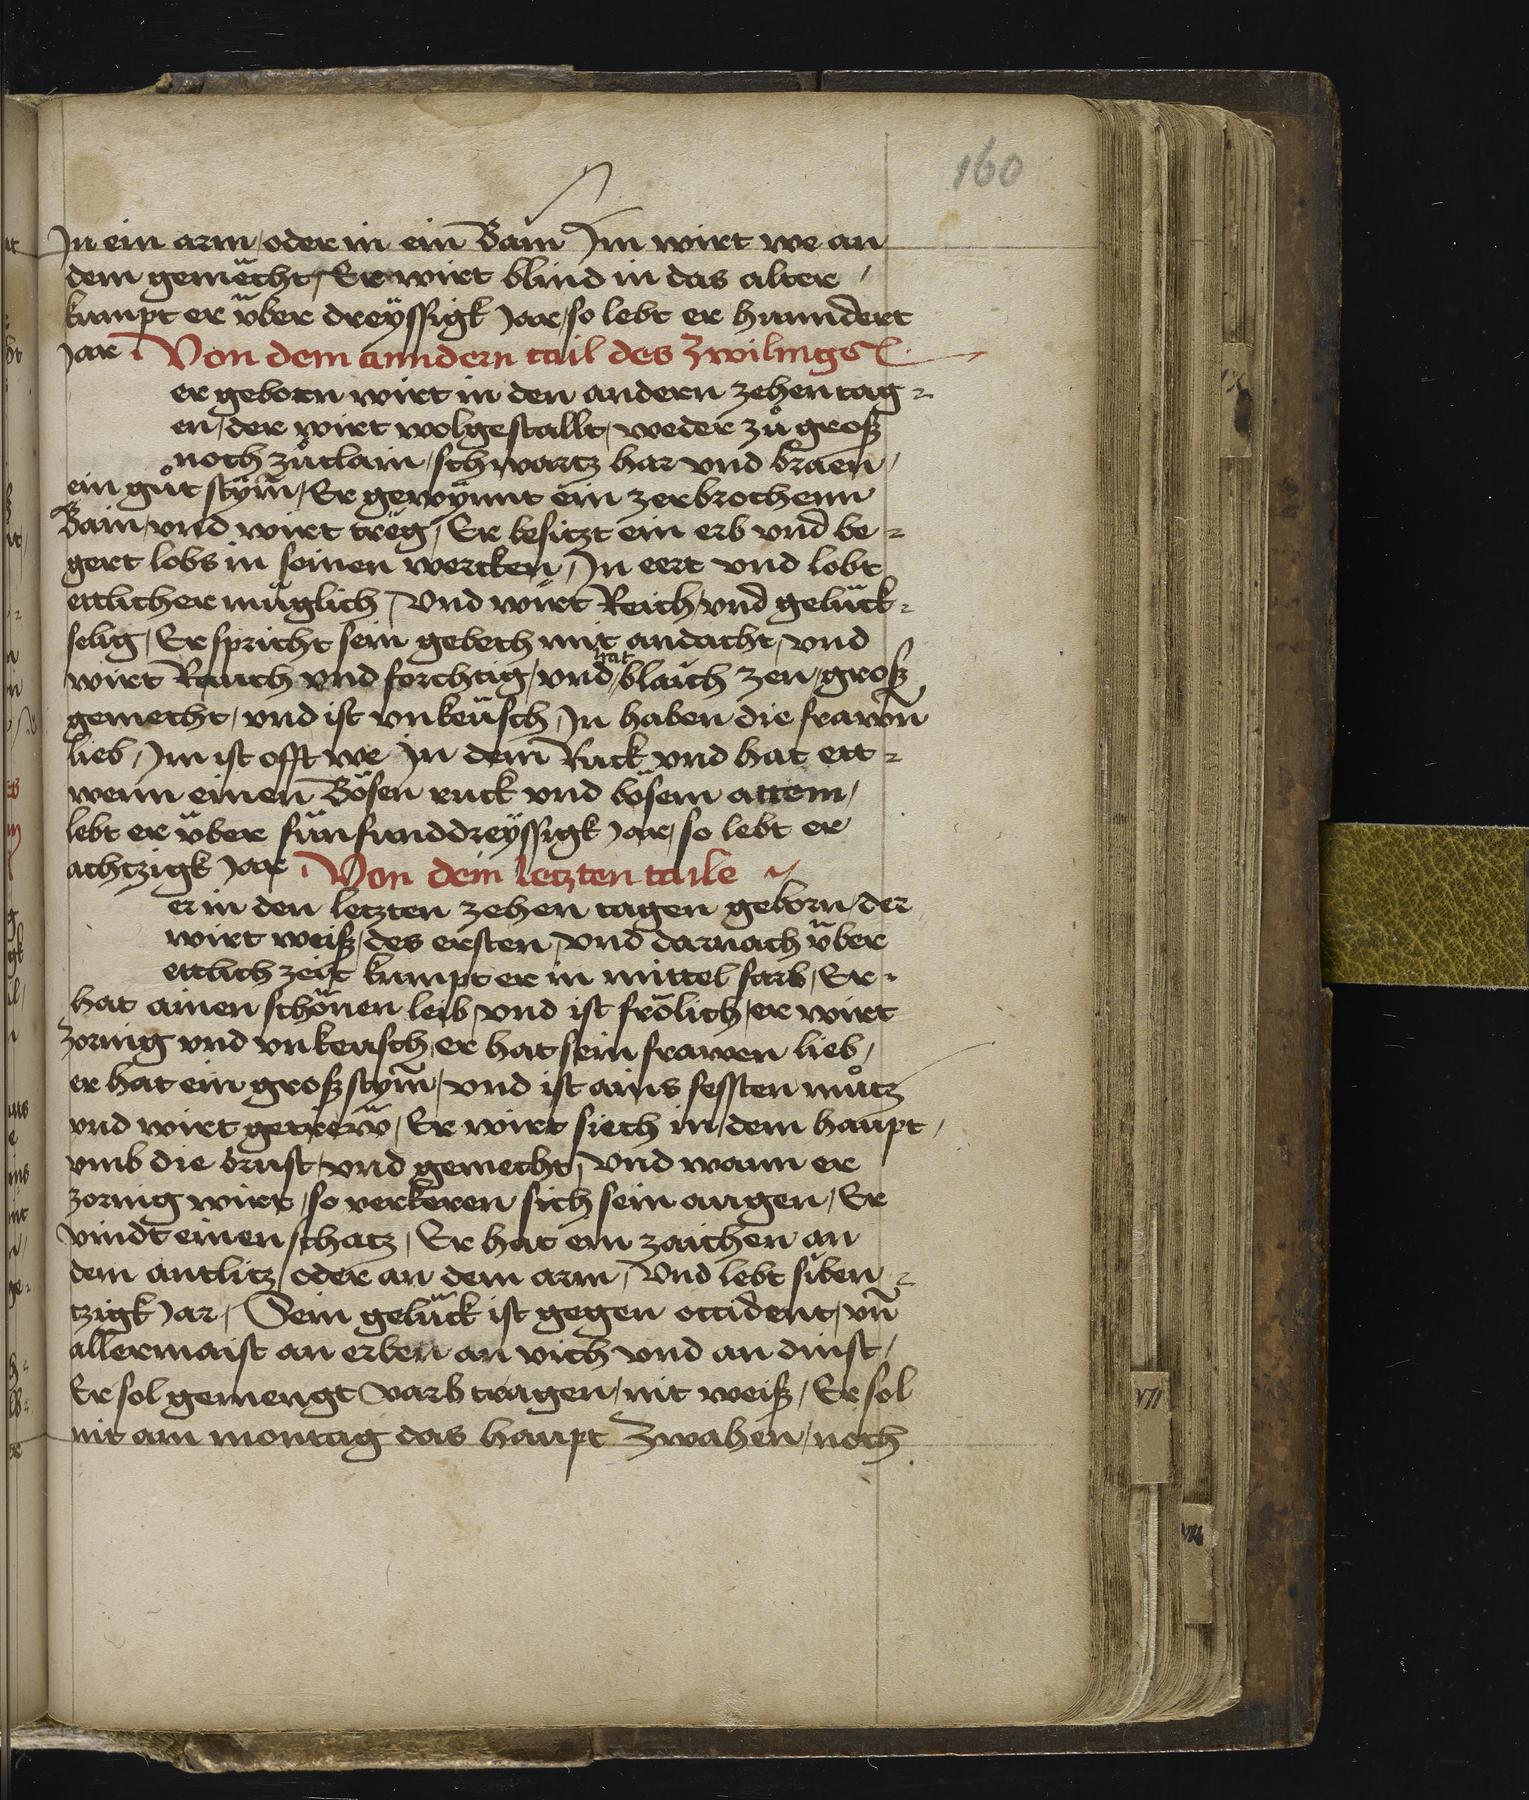 160
In ein arm / oder in ein Bain Im wirt we an
dem gemächt / Er wirt blind in das alter /
kumpt er über dreÿssigk Jar / so lebt er hunndert
Jar Von dem anndern tail des Zwilings
er geborn wirt in den andern zehen tag-
en / der wirt wolgestallt / weder zů groß
noch zůclain / schwartz har vnd braen /
ein gůt stÿm̄ / Er gewÿnnt ein zerbrochenn
Bain / vnd wirt treg / Er besitzt ein erb vnd be-
gert lobs in seinen wercken / In eert vnd lobt
ettlicher müglich / Vnd würt Reich / vnd gelück-
selig / Er spricht sein gebeth mit andacht / vnd
hat
wirt Rauch vnd forchtig / vnd blaich zen / groß
gemecht / vnd ist vnkeüsch / In haben die frawñ
lieb / Im ist offt we In dem Ruck vnd hat ett-
wenn einen Bösen ruck vnd bösem attem /
lebt er über fünfunddreÿssigk Jar / so lebt er
achtzigk Jar Von dem letzten taile
er in den letzten zehen tagen geborn / der
wirt weiß / des ersten / vnd darnach über
ettlich zeit kumpt er in mittel farb / Er
hat ainen schönen leib / vnd ist frölich / er wirt
zornig vnd vnkeusch / er hat sein frawen lieb /
er hat ein groß stÿm̄ / vnd ist ains festen můtz
vnd wirt getrew̎ / Er wirt siech in dem haupt /
vmb die brust / vnd gemecht / Vnd wann er
zornig wirt / so verkeren sich sein augen / Er
vindt einen schatz / Er hat ein zaichen an
dem antlitz / oder an dem arm / Vnd lebt siben-
tzigk Jar / Sein gelück ist gegen occident / vn̄
allermaist an erben an vich vnd an dinst /
Er sol gemengt varb tragen / nit weiß / Er sol
nit am montag das haupt Zwahen / noch
VII
VIII